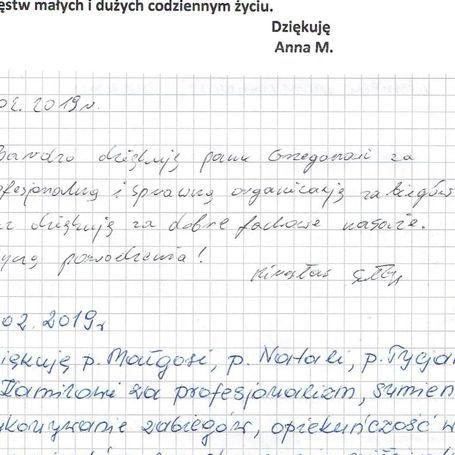 ęstw małych i dużych codziennym życiu.
Dziękuję
Anna M.
02. 2019 r.
Bardzo dziękuję panu Grzegorzowi za
ofesjonalną i sprawną organizację zabiegów
z dziękuję za dobre fachowe masaże.
yczę powodzenia!
02.2019r
iękuję p. Małgosi, p. Natali, p. Tycja
Kamilowi za profesjonalizm, sumien
ykonywanie zabiegów, opiekuńczość w